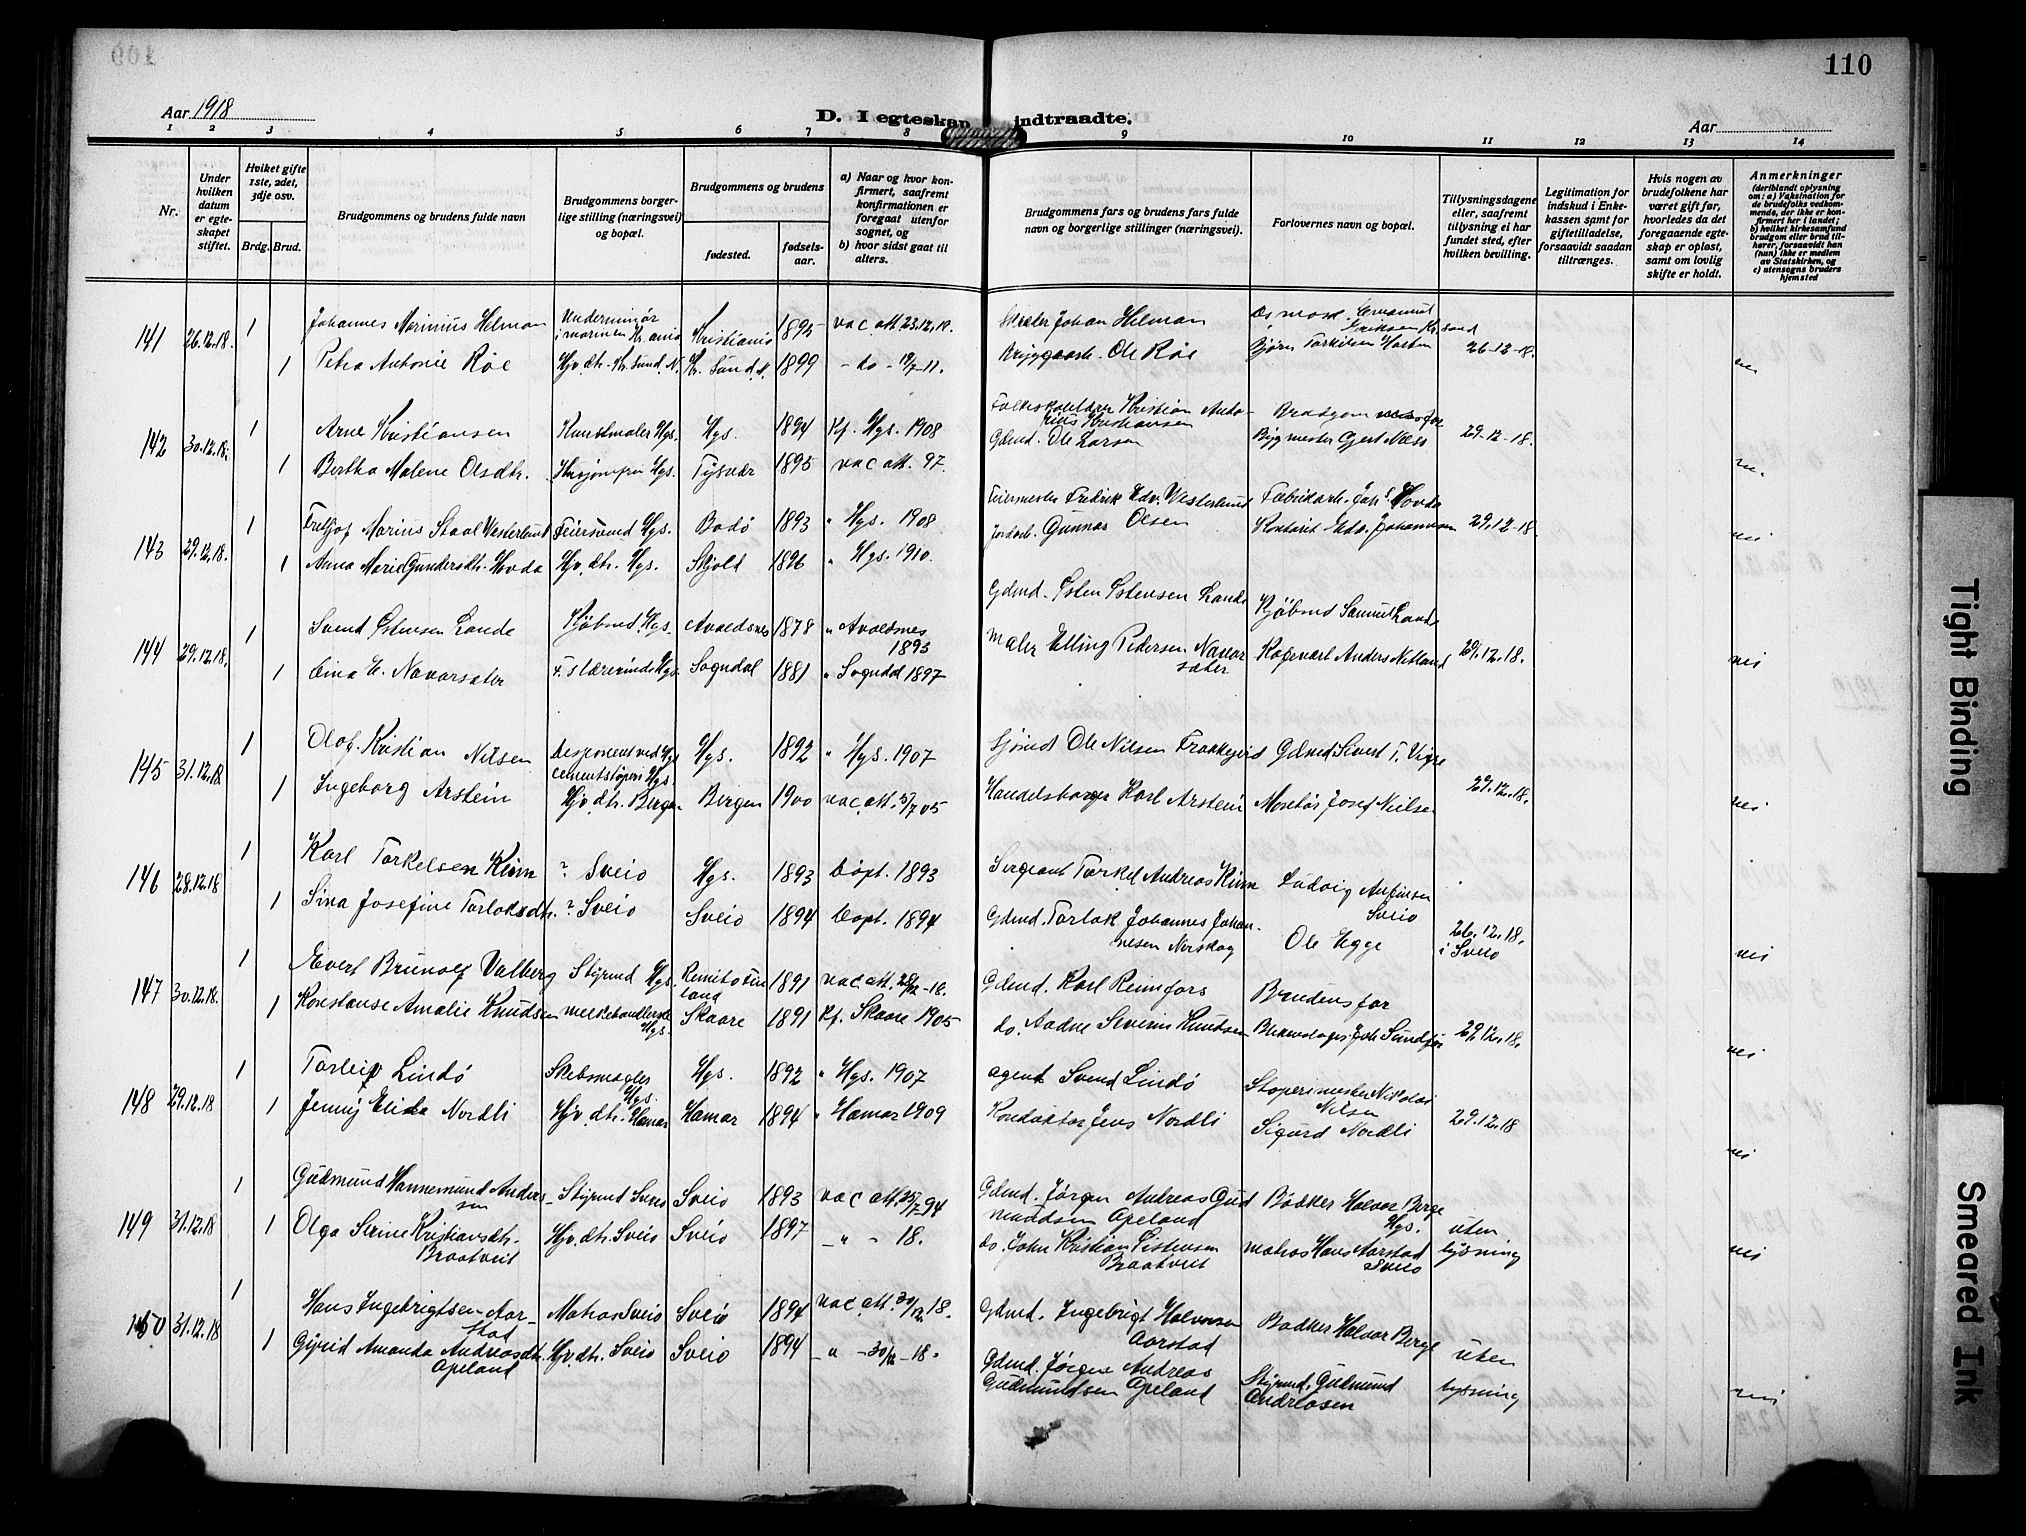 110
Aar 1918
D. I egteskap indtraadte.
Aar
1 2 3 4 5 6 7 8 9 10 11 12 13 14
Nr.
Under hvilken datum er egteskapet stiftet.
Hvilket gifte 1ste, 2det, 3dje osv.
Brdg. Brud.
Brudgommens og brudens fulde navn
Brudgommens borgerlige stilling (næringsvei) og bopæl.
Brudgommens og brudens
fødested.
fødselsaar.
a) Naar og hvor konfirmert, saafremt konfirmationen er foregaat utenfor sognet, og
b) hvor sidst gaat til alters.
Brudgommens fars og brudens fars fulde navn og borgerlige stillinger (næringsvei).
Forlovernes navn og bopæl.
Tillysningsdagene eller, saafremt tillysning ei har fundet sted, efter hvilken bevilling.
Legitimation for indskud i Enkekassen samt for giftetilladelse, forsaavidt saadan tiltrænges.
Hvis nogen av brudefolkene har været gift før, hvorledes da det foregaaende egteskap er opløst, samt om lovlig skifte er holdt.
Anmerkninger
(deriblandt oplysning om: a) Vaksination for de brudefolks vedkommende, der ikke er konfirmert her i landet; b) hvilket kirkesamfund brudgom eller brud tilhører, forsaavidt han (hun) ikke er medlem av Statskirken, og c) utensogns bruders hjemsted
141 26.12.18. 1 Johannes Marinius Hilman Kristiania 1895 vac. att. 23.12.18. Johan Hilman
1 Petra Antonie Røe Hjv. dtr. Kr. Sund. N. Kr. Sund. N. 1899 - do - 19/7-11. Bryggearb. Ole Røe 26-12-18.
142 30.12.18. 1 Arne Kristiansen Kunstmaler Hgs. Hgs. 1894 Kf. Hgs. 1908 Kristian
1 Bertha Malene Olsdtr. Hgs. Tysvær 1895 vac att. 97. Gdmd. Ole Larsen Bygmester Gjert Næss 29-12-18.
143 29.12.18. 1 Fritjof Marius Staal Westerlund Feiersvend Hgs. Bodø 1893 " Hgs. 1908 Feiermester Fredrik Edv. Westerlund Fabrikarb. Joh. Hovda
1 Anna Marie Gundersdtr. Hovda Hjv. dtr. Hgs. Skjold 1896 " Hgs. 1910. Jordarb. Gunnar Olsen Kontorist Edv. Johannesen 29.12-18. nei
144 29.12.18. 1 Svend Østensen Lande Kjøbmd. Hgs. Avaldsnes 1878 " Avaldsnes 1893 Gdmd. Østen Østensen Lande Kjøbmd Samuel Lande
1 Hgs. Sogndal 1881 " Sogndal 1897 Maler Elling Pedersen Navarsater Anders Netland 29.12.18. nei
145 31.12.18 1 Olaf Kristian Nilsen Hgs. Hgs. 1892 " Hgs. 1907 Sjømd Ole Nilsen Gdmd Sivert T. Vigre
1 Ingeborg Arstein Hjv. dtr. Bergen Bergen 1900 vac. att. 5/7 05 Handelsborger Karl Arstein Josef Nielsen 29.12.18. nei
146 28.12.18 1 Karl Torkelsen Kinn ? Sveio Hgs. 1893 Døpt. 1893 Sergeant Torkel Andreas Kinn Ludvig Anfinsen Sveio
1 Sina Josefine Torlaksdtr. ? Sveio Sveio 1894 Døpt. 1894 Gdmd. Torlak Johannes Johannesen Nerskog Ole Egge 26.12.18. i Sveio nei
147 30.12.18. 1 Evert Brunolf Valberg Styrmd Hgs. Finland 1891 vac att. 28/12-18. Gdmd. Karl Reinfors Brudens far
1 Konstanse Amalie Knudsen melkehandlerske Hgs. Skaare 1891 Kf. Skaare 1905 do. Aadne Severin Knudsen Sundfør 29.12.18. nei
148 29.12.18 1 Torleiv Lindø Skibsmægler Hgs. Hgs. 1892 " Hgs. 1907 agent Svend Lindø Støperimester Nikolai Nilsen
1 Jenny Elida Nordli Hjv. dtr. Hamar Hamar 1894 " Hamar 1909 Konduktør Jens Nordli Sigurd Nordli 29.12.18 nei
149 31.12.18 1 Gudmund Hannemund Andersen Styrmd Sveio Sveio 1893 vac att. 25/7-94 Gdmd. Jørgen Andreas Gudmundsen Apeland Bødker Halvor Berge Hgs. uten
1 Olga Serine Kristiansdtr. Braatveit Hjv. dtr. Sveio Sveio 1897 - " - 18. do. John Kristian Braatveit Matros Hans Aarstad Sveio lysning nei
150 31.12.18 1 Hans Ingebrigtsen Aarstad Matros Sveio Sveio 1894 vac. att. 30/12.18. Gdmd. Ingebrigt Halvorsen Aarstad Bødker Halvor Berge uten
1 Gyrid Amanda Andreasdtr. Apeland Hjv. dtr. Sveio Sveio 1894 - " - 30/12-18. Gdmd. Jørgen Andreas Gudmundsen Apeland Styrmd. Gudmund Andreasen lysning nei
Tight Binding
Smeared Ink